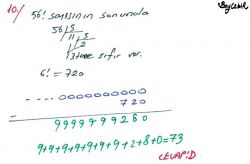 10./ 56! sayısının sonunda
56 | 5
11 | 5
2
13 tane sıfır var.
6! = 720
..... 000000000
720
9999999280
9+9+9+9+9+9+9+2+8+0=73
CEVAP:D